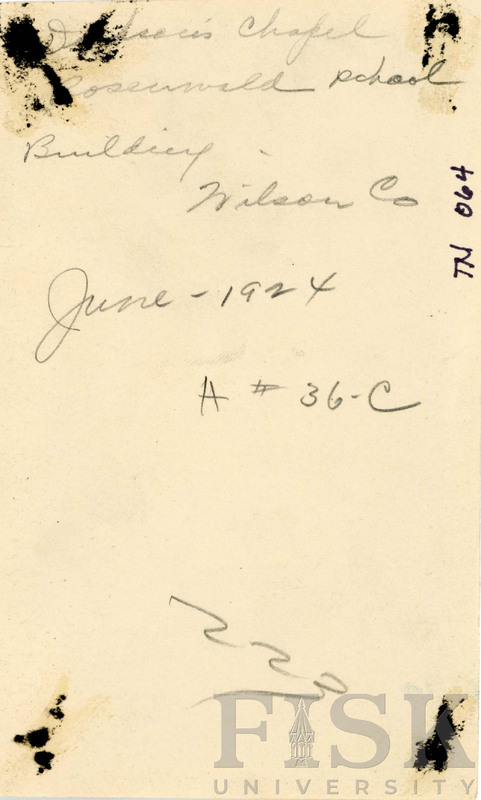 Chapel
Rosenwald school
Building -
Wilson Co
June - 1924
A # 36-C
TN 064
FISK
UNIVERSITY